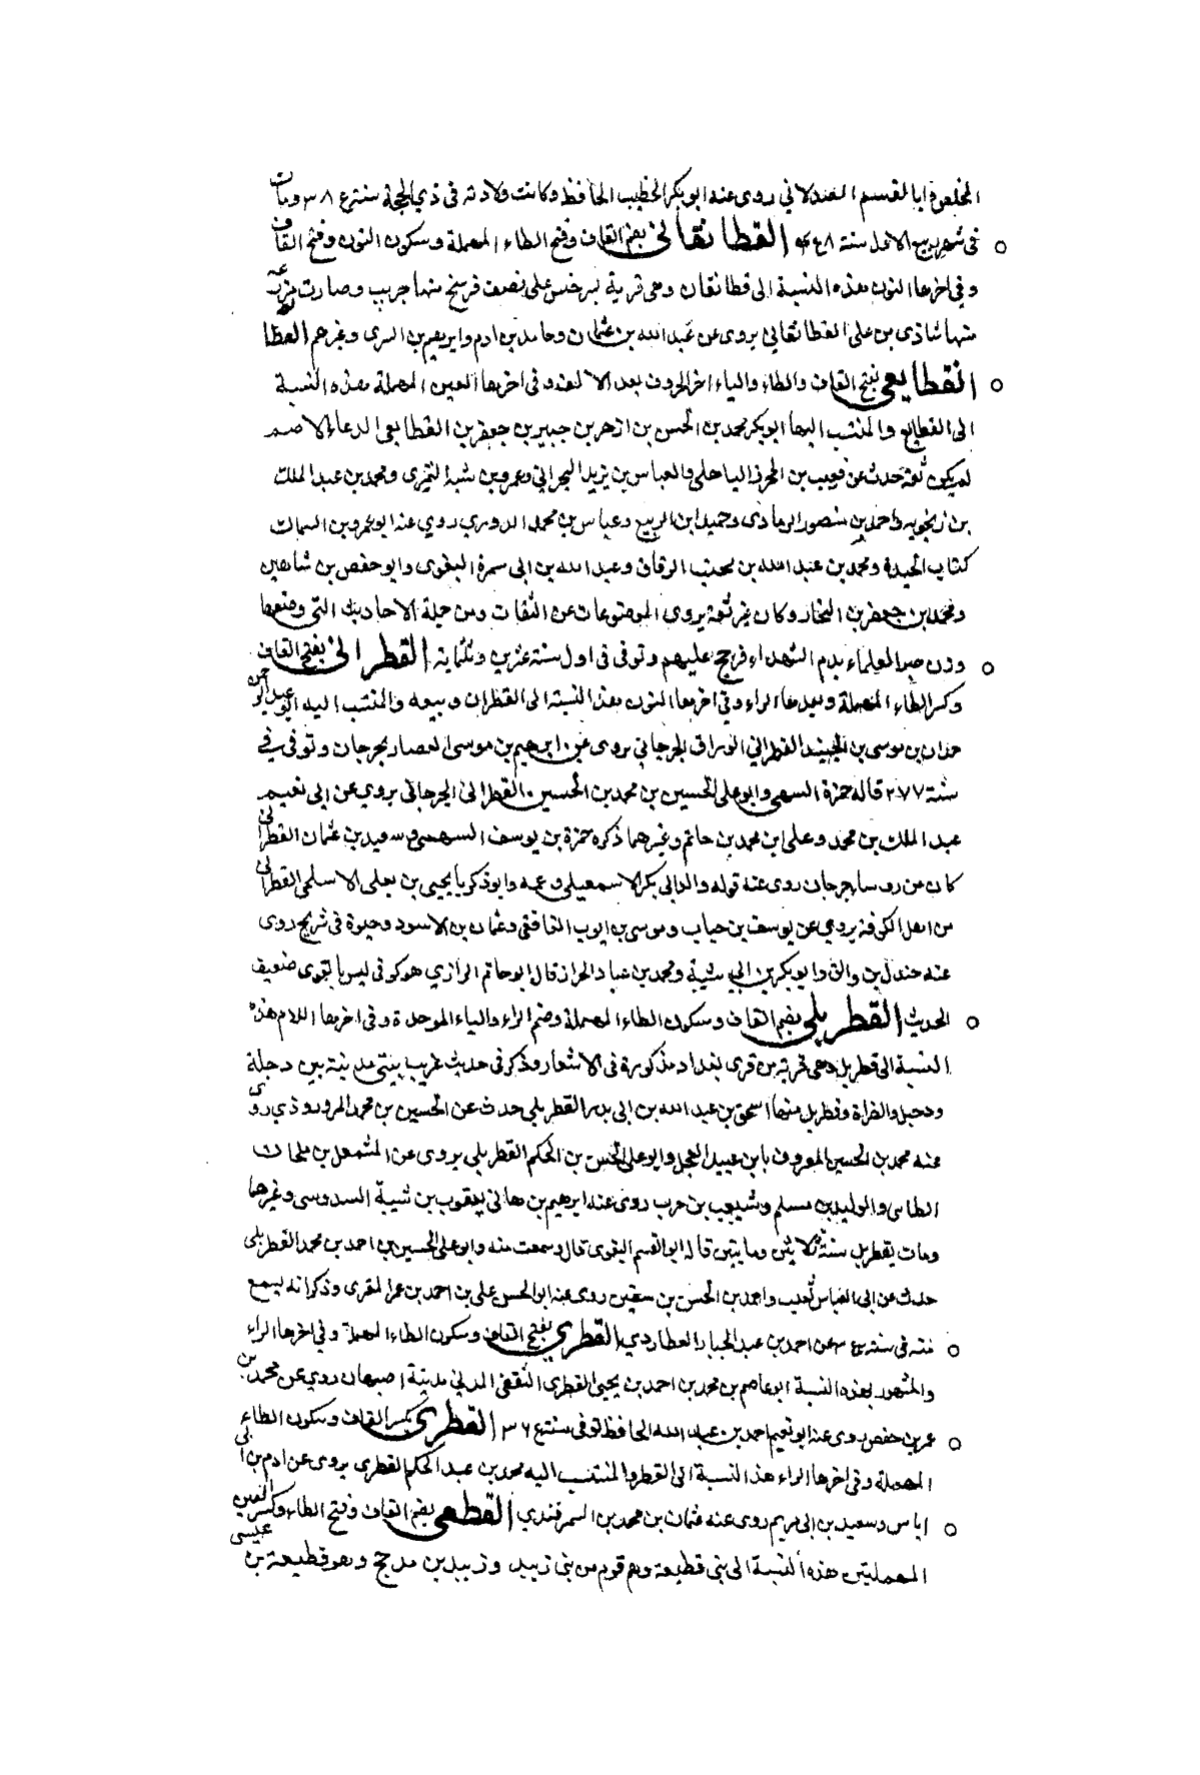 المخلص وابا القسم الصندلاني روى عنه ابو بكر الخطيب الحافظ وكانت ولادته في ذي الحجة سنة ومات
في شهر ربيع الاول سنة القطانقاني بضم القاف وفتح الطاء المهملة وسكون النون وفتح القاف
وفي اخرها النون هذه النسبة الى قطانقان وهي قرية بسرخس على نصف فرسخ منها خرب وصارت مزرعة
منها شاذي بن علي القطانقاني يروي عن عبد الله بن عثمان وحامد بن ادم وابرهيم بن السري وغيرهم
القطايعي بفتح القاف والطاء والياء اخر الحروف بعد الالف وفي اخرها العين المهملة هذه النسبة
الى القطايع والمنتسب اليها ابو بكر محمد بن الحسن بن ازهر بن جبير بن جعفر بن القطايعي الدعاء الاصم
لم يكن ثقة حدث عن قعنب بن المحرز الباهلي والعباس بن يزيد البحراني وعمرو بن شبة النميري ومحمد بن عبد الملك
بن زنجويه واحمد بن منصور الرمادي وحميد ابن الربيع وعباس بن محمد الدوري روي عنه ابو عمرو بن السماك
كتاب الحيدة ومحمد بن عبد الله بن بخيت الدقاق وعبد الله بن ابي سمرة البغوى وابو حفص بن شاهين
ومحمد بن جعفر بن النجار وكان غير ثقة يروي الموضوعات عن الثقات ومن جملة الاحاديث التي وضعها
وزن حبر العلماء بدم الشهداء فرجح عليهم وتوفى في اول سنة عشرين وثلثماية القطراني بفتح القاف
وكسر الطاء المهملة وبعدها الراء وفي اخرها النون هذه النسبة الى القطران وبيعه والمنتسب اليه ابو عبد الرحمن
حمدان بن موسى بن الجنيد القطراني الوراق الجرجاني يروى عن ابرهيم بن موسى العصار بجرجان وتوفى في
سنة ٢٧٧ قاله حمزة السهمي وابو علي الحسين بن محمد بن الحسين القطراني الجرجاني يروي عن ابي نعيم
عبد الملك بن محمد وعلي ابن محمد بن حاتم وغيرهما ذكره حمزة بن يوسف السهمي وسعيد بن عثمان القطراني
كان من روسا جرجان روى عنه قوله والد ابي بكر الاسمعيلي وعمه وابو زكريا يحيى بن يعلى الاسلمي القطراني
من اهل الكوفة يروي عن يوسف بن حباب وموسى بن ايوب الغافقي وعثمان بن الاسود وحيوة بن شريح روى
عنه جندل بن والق وابو بكر بن ابي شيبة ومحمد بن عباد الخراز قال ابو حاتم الرازي هو كوفي ليس بالقوى ضعيف
الحديث القطربلي بضم القاف وسكون الطاء المهملة وضم الراء والباء الموحدة وفي اخرها اللام هذه
النسبة الى قطربل وهي قرية من قرى بغداد مذكورة في الاشعار وذكر في حديث غريب يبنى مدينة بين دجلة
ودجيل والفراة وقطربل منها اسحق بن عبد الله بن ابي بدر القطربلي حدث عن الحسين بن محمد المروروذي روى
عنه محمد بن الحسين المعروف بابن عبيد العجل وابو علي الحسن بن الحكم القطربلي يروى عن المشمعل بن ملحان
الطاى والوليد بن مسلم وشعيب بن حرب روى عنه ابرهيم بن هاني ويعقوب بن شيبة السدوسي وغيرهما
ومات بقطربل سنة ثلاثين ومايتين قاله ابو القسم البغوى قال وسمعت منه وابو علي الحسين بن احمد بن محمد القطربلي
حدث عن ابي العباس ثعلب واحمد بن الحسن بن سفين روى عنه ابو الحسن علي بن احمد بن عمر المقرى وذكر انه يسمع
منه في سنة عن احمد بن عبد الجبار العطاردي القطري بفتح القاف وسكون الطاء المهملة وفي اخرها الراء
والمشهور بهذه النسبة ابو عاصم بن محمد بن احمد بن يحيى القطرى الثقفي المديني مدينة اصبهان روي عن محمد بن
عمر بن حفص روى عنه ابو نعيم احمد بن عبد الله الحافظ توفى سنة القطري بكسر القاف وسكون الطاء
المهملة وفي اخرها الراء هذه النسبة الى القطر والمنتسب اليه محمد بن عبد الحكم القطرى يروى عن ادم بن ابي
اياس وسعيد بن ابي مريم روى عنه عثمان بن محمد بن السمرقندي القطعي بضم القاف وفتح الطاء وكسر العين
المهملتين هذه النسبة الى بني قطيعة وهم قوم من بني زبيد وزبيد بن مذحج وهو قطيعة بن عيسى